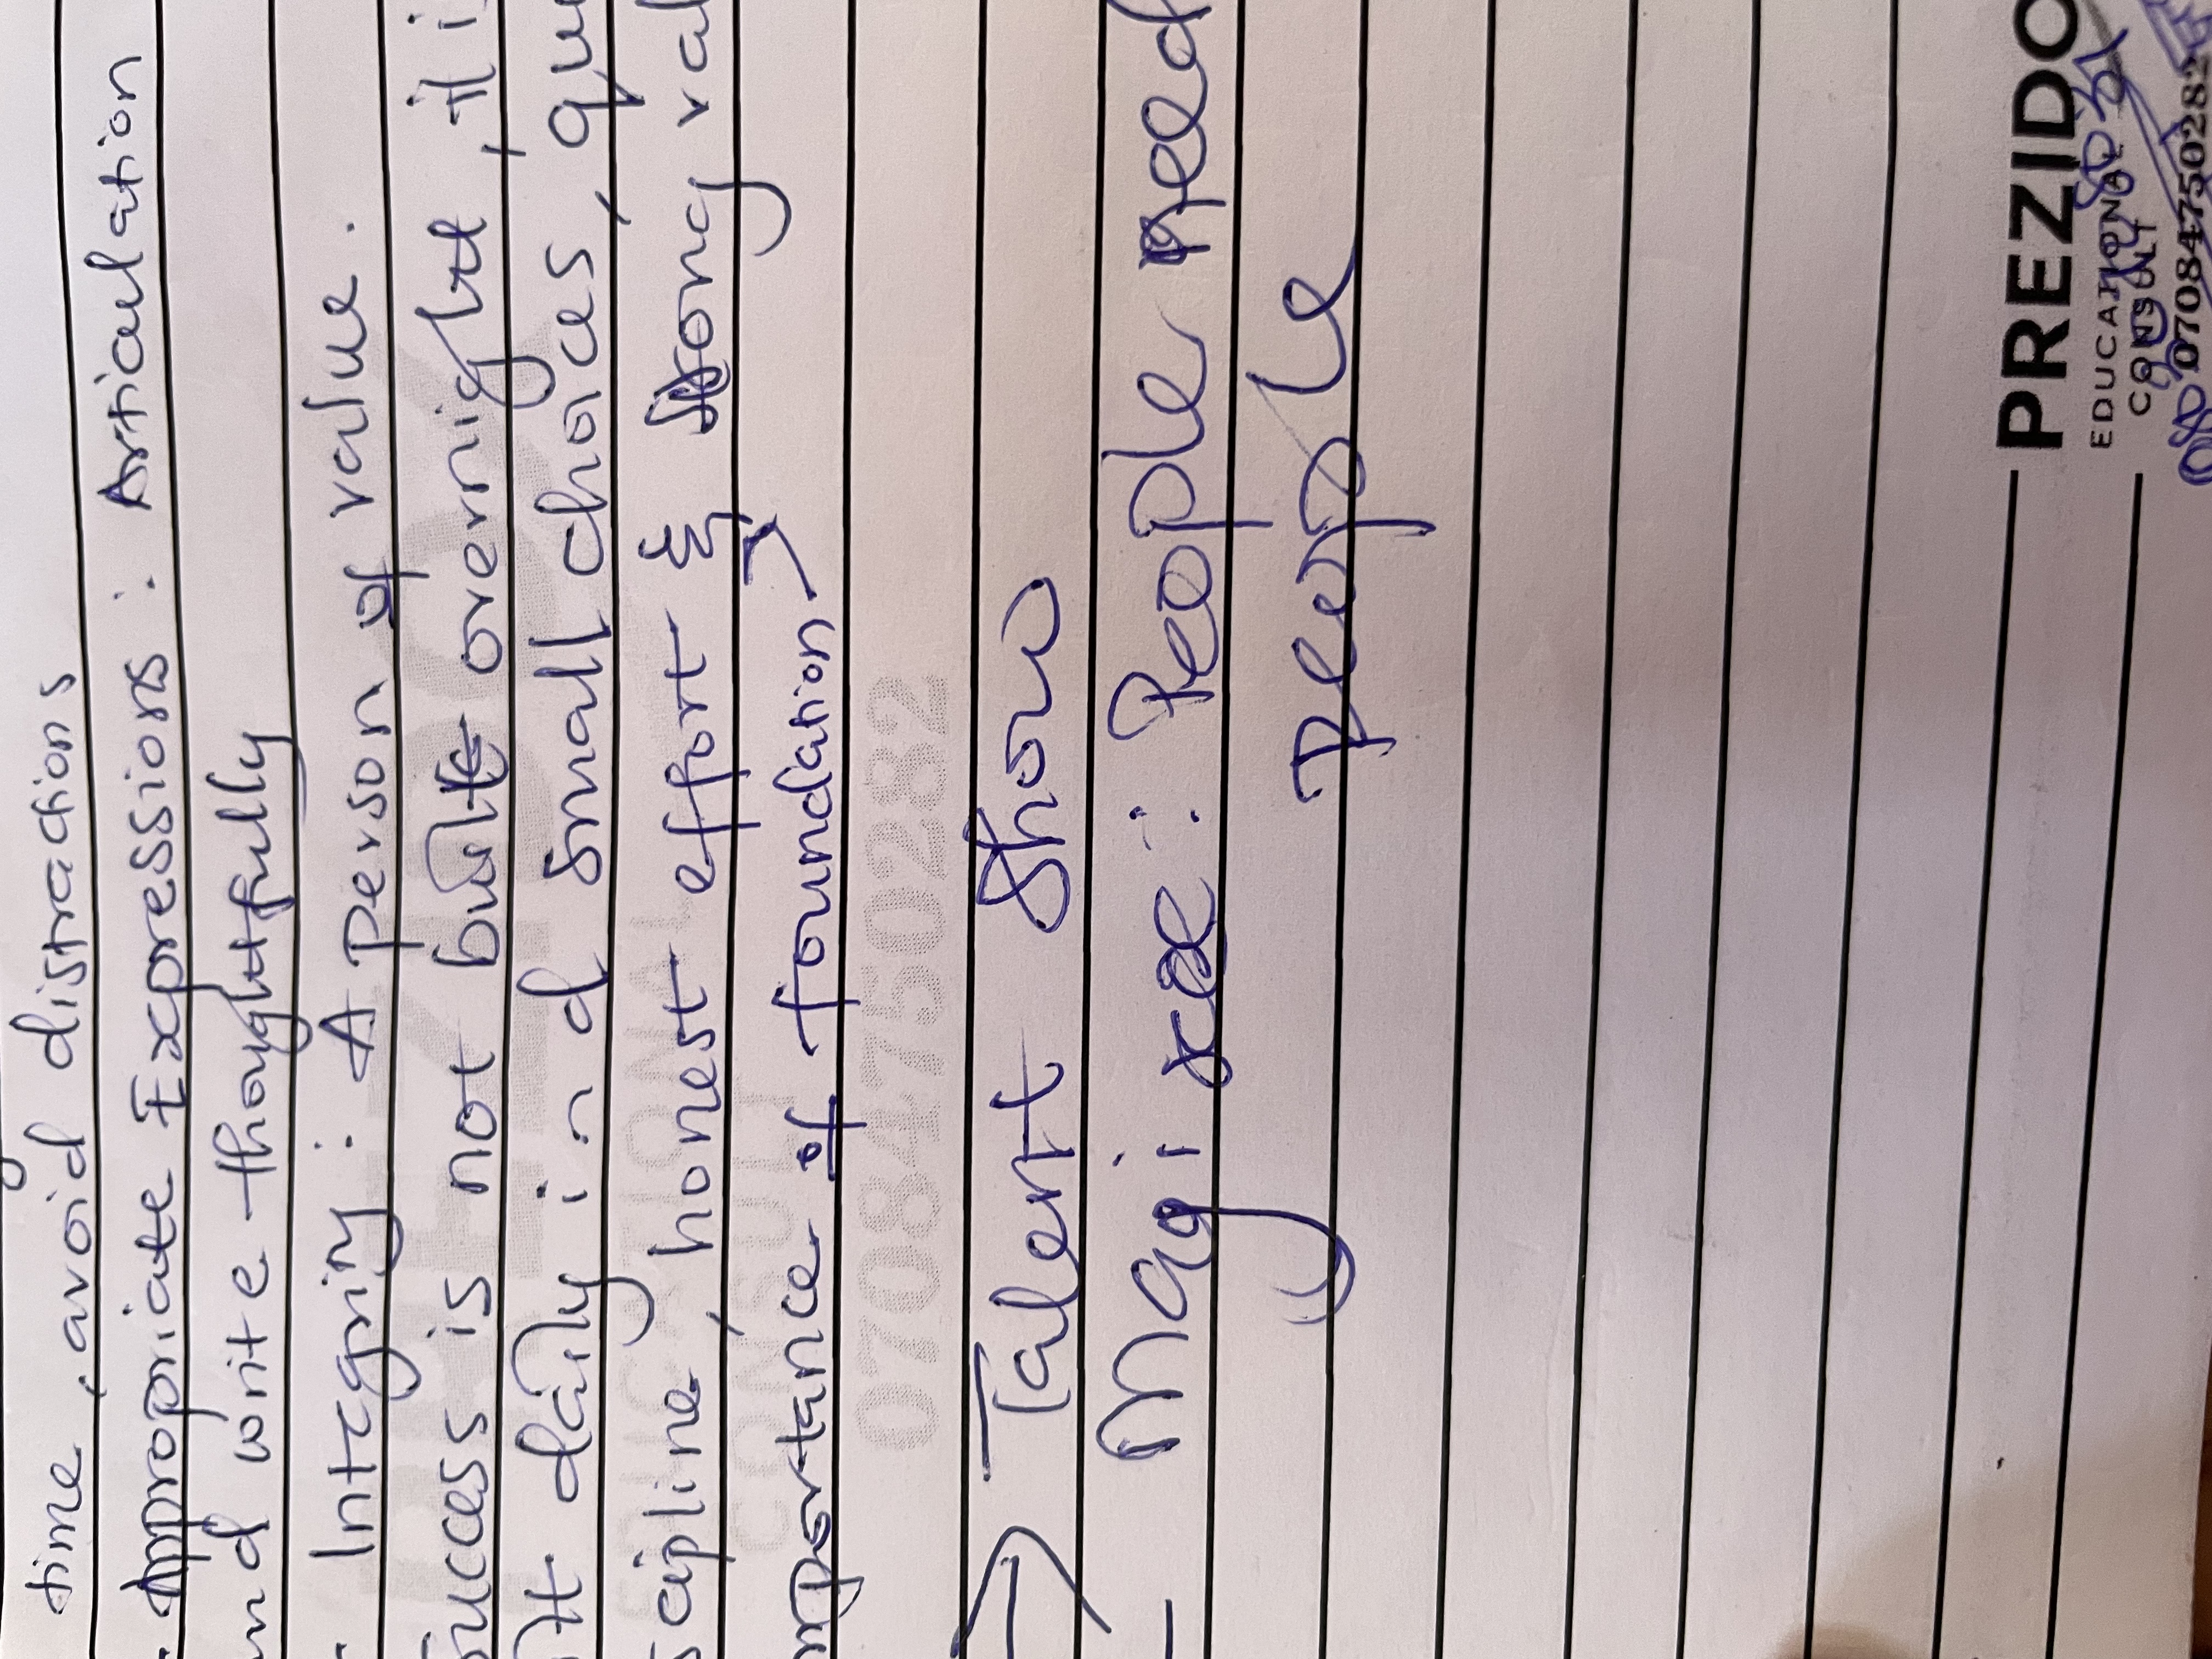 time, avoid distractions
. Appropriate Expressions : Articulation
and write thoughtfully
. Integrity : A person of value.
Success is not built overnight, it i
lt daily in d small choices, qui
scipline, honest effort & strong val
mportance of foundation
→ Talent Show
- : People need
people
07084750282
PREZIDO
EDUCATIONAL
CONSULT
0708475028